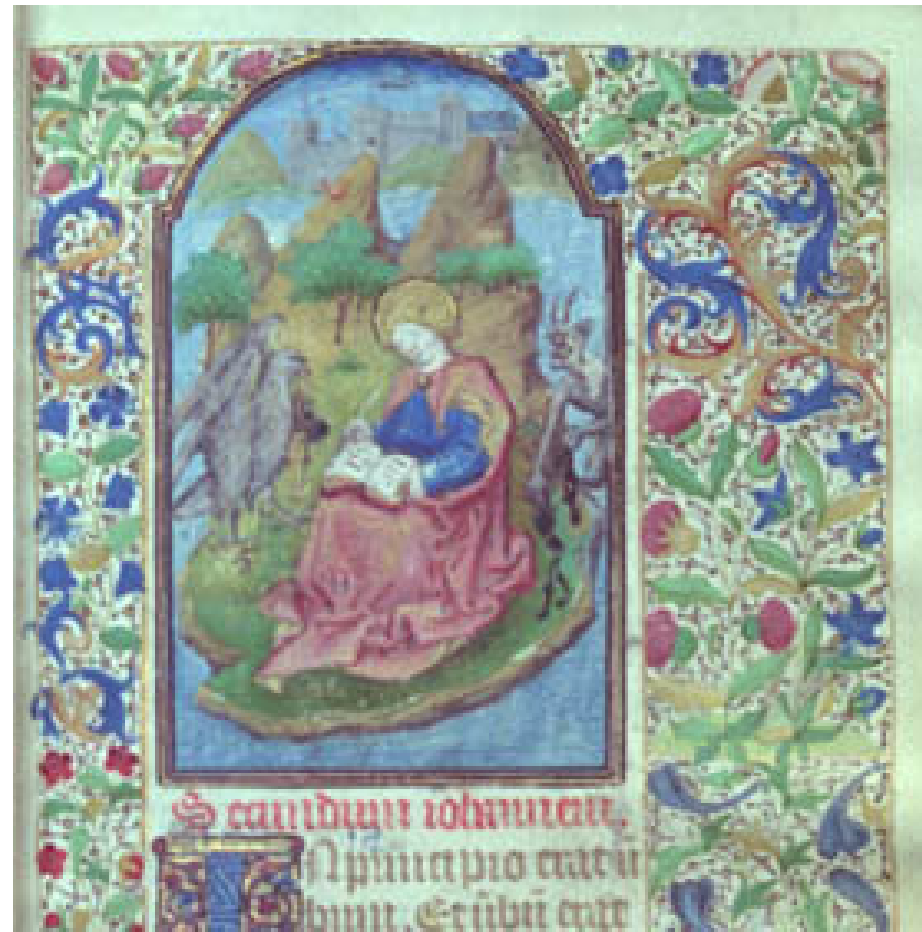 Secundum iohannem.
IN principio erat ū
bum. Et ūbū erat